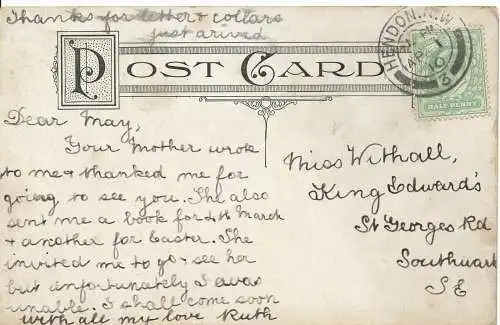 Thanks for letter & collars
just arived
POST CARD
HENDON. N.W
1
10
3
HALF PENNY
Dear May,
Your Mother wrote
to me & thanked me for
going to see you. She also
sent me a book for 4th March
& another for Easter. She
invited me to go & see her
but unfortunately I was
unable. I shall come soon
with all my love Ruth
Miss Withall,
King Edward's
St Georges Rd
Southwark
S.E